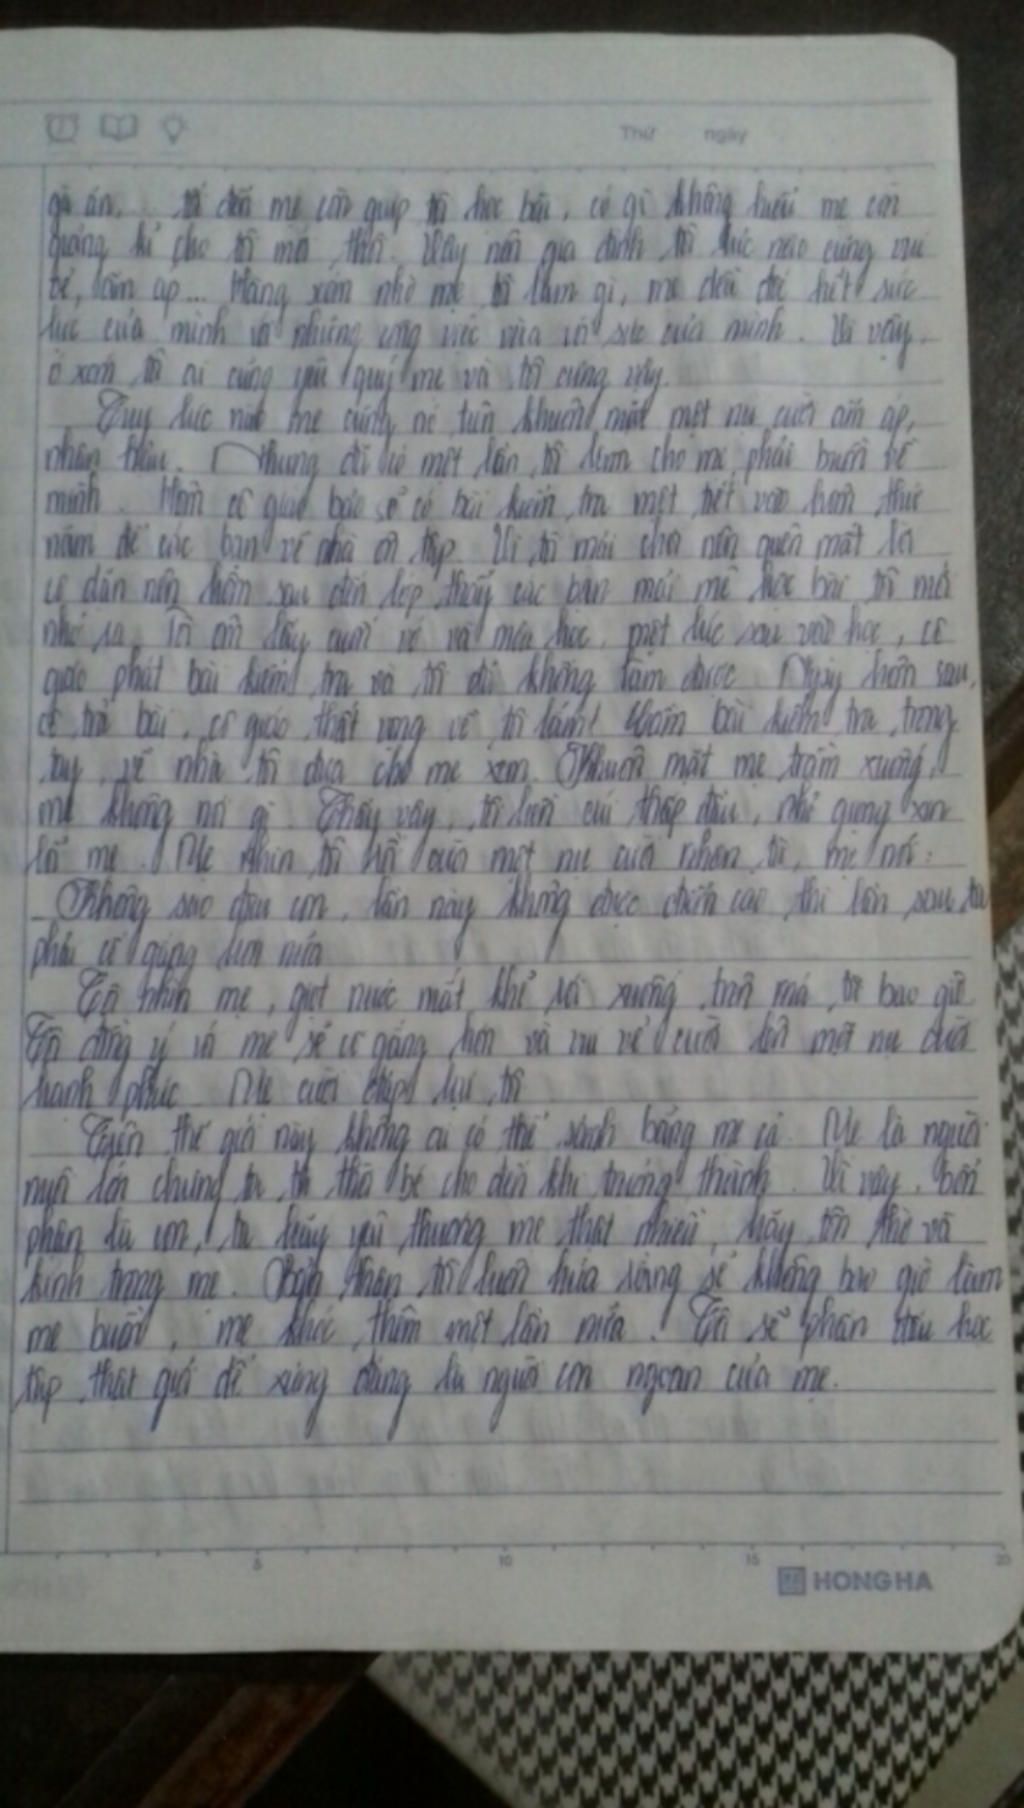 Thứ ngày
gà án, ... tối đến mẹ còn giúp tôi học bài, có gì không hiểu mẹ còn
cho tôi mới thôi. Vậy nên gia đình tôi lúc nào cũng vui
vẻ, ấm áp... Hàng xóm nhờ mẹ tôi làm gì, mẹ đều hết sức
lực của mình và những công việc vừa với sức của mình. Vì vậy,
ở xóm tôi ai cũng yêu quý mẹ và tôi cũng vậy.
Tuy lúc nào mẹ cũng nở trên khuôn mặt một nụ cười ấm áp,
nhân hậu. Nhưng đã có một lần, tôi làm cho mẹ phải buồn về
mình. Hôm cô giáo báo sẽ có bài kiểm tra một tiết vào hôm thứ
năm để các bạn về nhà ôn tập. Vì tôi mải chơi nên quên mất lời
cô dặn nên hôm sau đến lớp, thấy các bạn mải mê học bài tôi mới
nhớ ra. Tôi lấy vở và học, một lúc sau vào học, cô
giáo phát bài kiểm tra và tôi đã không làm được. Ngày hôm sau,
cô trả bài, cô giáo thất vọng về tôi lắm! Cầm bài kiểm tra trong
tay, về nhà tôi đưa cho mẹ xem. Khuôn mặt mẹ trầm xuống,
mẹ không nói gì. Thấy vậy, tôi liền cúi thấp đầu, xin
lỗi mẹ. Mẹ nhìn tôi rồi cười một nụ cười nhân từ, mẹ nói:
- Không sao đâu con, lần này không được điểm cao thì lần sau ta
phải cố gắng hơn nữa
Tôi nhìn mẹ, giọt nước mắt khẽ rơi xuống trên má từ bao giờ
Tôi đồng ý với mẹ sẽ cố gắng hơn và vui vẻ cười lên một nụ cười
hạnh phúc. Mẹ cười đáp lại tôi
Trên thế giới này không ai có thể sánh bằng mẹ cả. Mẹ là người
nuôi lớn chúng ta từ thở bé cho đến khi trưởng thành. Vì vậy, bổn
phận là con, ta hãy yêu thương mẹ thật nhiều, hãy tôn thờ và
kính trọng mẹ. Bản thân tôi luôn hứa rằng sẽ không bao giờ làm
mẹ buồn, mẹ khóc thêm một lần nữa! Tôi sẽ phấn đấu học
tập thật giỏi để xứng đáng là người con ngoan của mẹ.
5 10 15 20
HONG HA